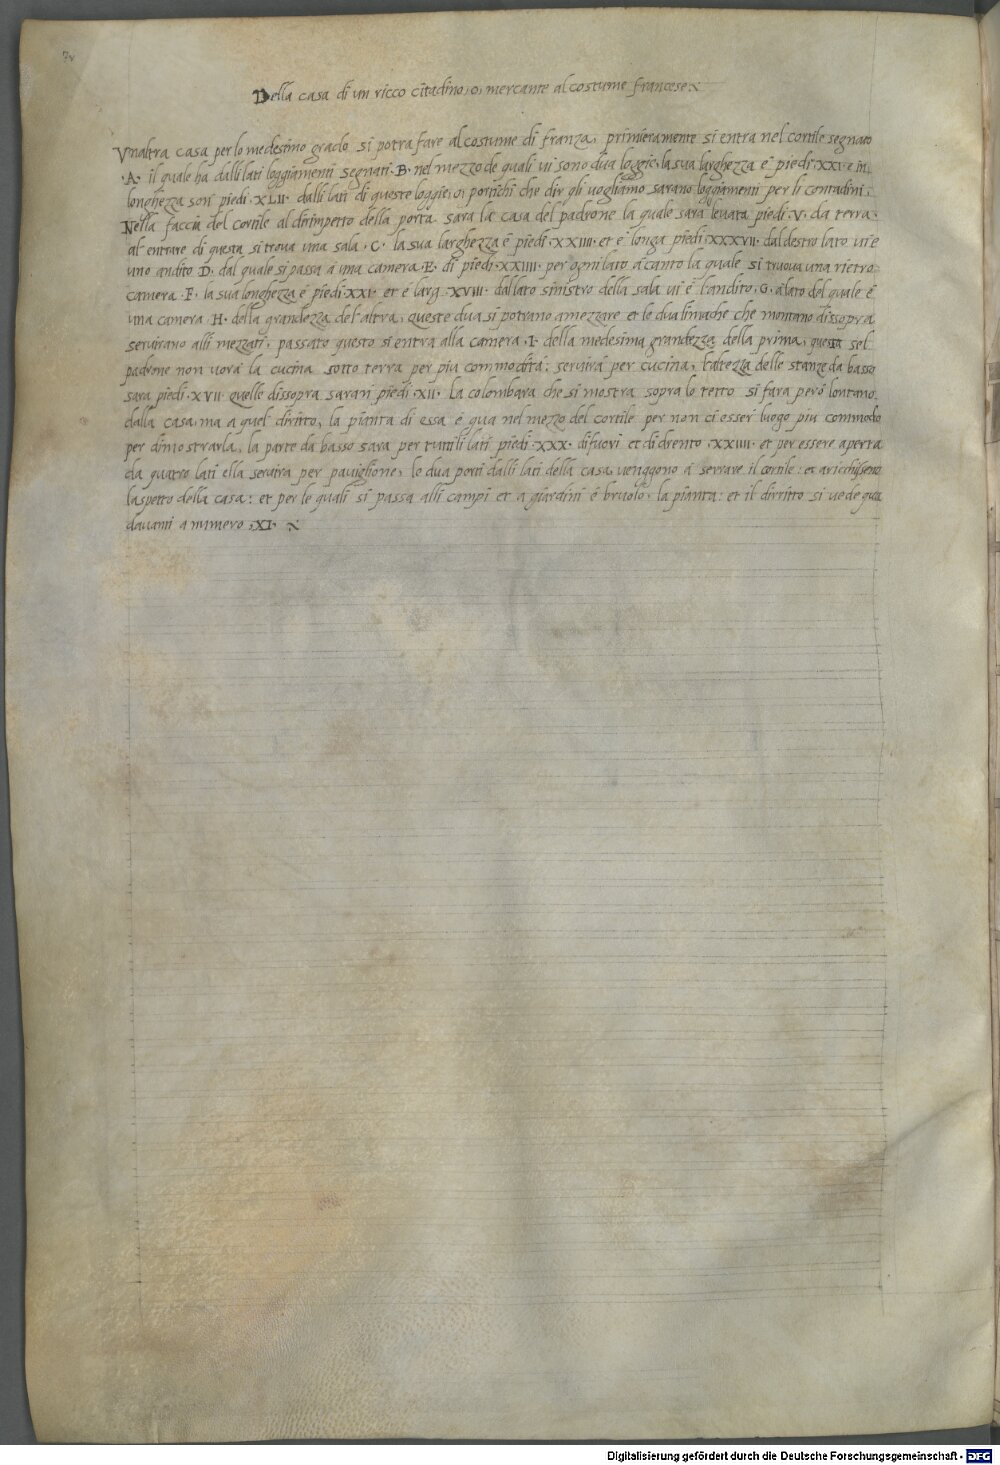 7v
Della casa di un ricco citadino, o, mercante al costume francese
Vnaltra casa per lo medesimo grado si potra fare al costume di franza, primieramente si entra nel cortile segnato
·A· il quale ha dalli lati loggiamenti segnati ·B· nel mezzo de quali ui sono dua loggie, la sua larghezza e piedi ·XXI· e in
longhezza son piedi ·XLII· dalli lati di queste loggie, o, portichi che dir gli uogliamo sarano loggiamenti per li contadini:
Nella faccia del cortile al dirimpetto della porta sara la casa del padrone la quale sara levata piedi ·V· da terra·
al entrare di questa si trova una sala ·C· la sua larghezza e piedi ·XXIIII· et e longa piedi ·XXXVII· dal destro lato ui e
uno andito D· dal quale si passa a una camera ·E· di piedi ·XXIIII· per ogni lato a canto la quale si truova una rietro
camera ·F· la sua longhezza e piedi ·XXI· et e larg· XVIII· dal lato sinistro della sala ui e l'andito ·G· a lato del quale e
una camera ·H· della grandezza del altra, queste dua si potrano amezzare et le dua limache che montano dissopra
servirano alli mezzati, passato questo si entra alla camera ·I· della medesima grandezza della prima, questa sel
padrone non vora la cucina sotto terra per piu commodita: servira per cucina, l'altezza delle stanze da basso
sara piedi ·XVII· quelle dissopra saran piedi ·XII· la colombara che si mostra sopra lo tetto si fara però lontano
dalla casa, ma a quel diritto, la pianta di essa è qua nel mezo del cortile per non ci esser luogo piu commodo
per dimostrarla, la parte da basso sara per tutti li lati piedi ·XXX· di fuori et di drento ·XXIIII· et per essere aperta
da quatro lati ella servira per paviglione, le dua porti dalli lati della casa venggono a serrare il cortile: et aricchiseno
laspetto della casa: et per le quali si passa alli campi et a giardini e bruolo, la pianta: et il dirritto si vede qua
davanti a numero ·XI·
Digitalisierung gefördert durch die Deutsche Forschungsgemeinschaft - DFG